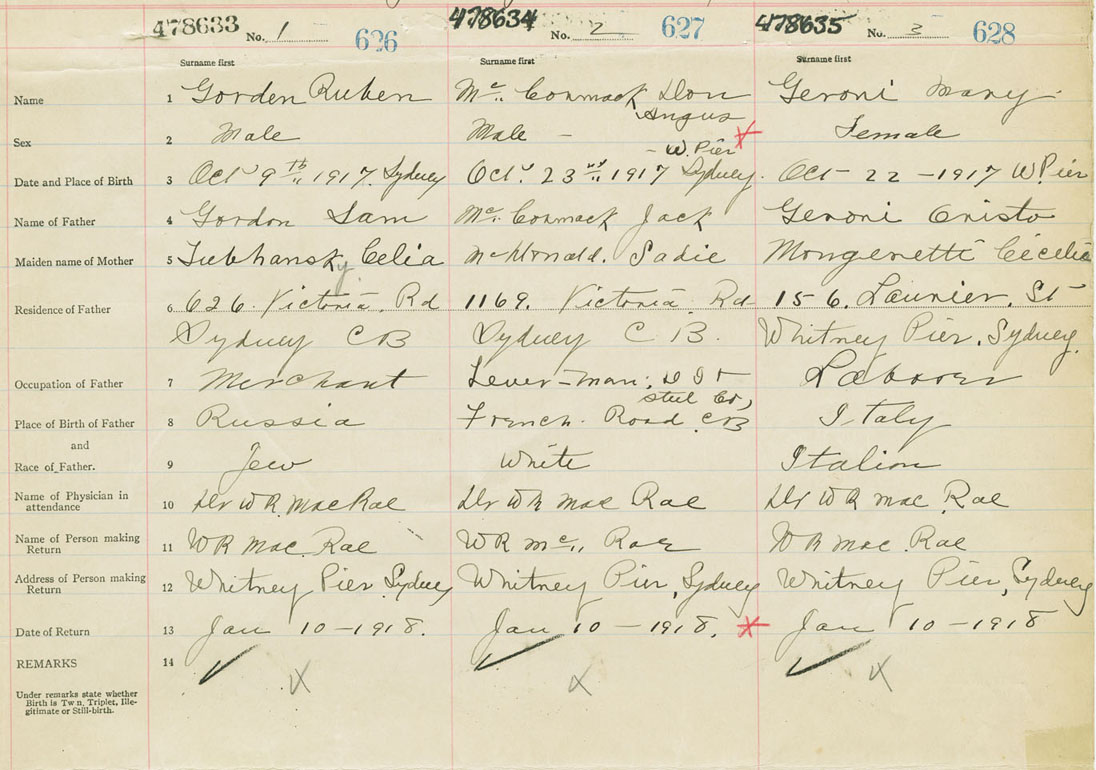 478633 No. 1 626 478634 No. 2 627 478635 No. 3 628
Surname first Surname first Surname first
Name 1 Gorden Ruben Mc Cormack Don Geroni Mary
Angus
Sex 2 Male Male - Female
- W. Pier
Date and Place of Birth 3 Oct 9th 1917. Sydney Oct. 23rd 1917 Sydney. Oct - 22 - 1917 W. Pier
Name of Father 4 Gordon Sam Mc Cormack Jack Geroni Cristo
Maiden name of Mother 5 Lubhansky Celia McDonald. Sadie Mongenetti Cecelia
Residence of Father 6 626. Victoria. Rd 1169. Victoria. Rd 156. Launier. St
Sydney CB Sydney C B. Whitney Pier. Sydney.
Occupation of Father 7 Merchant Lever-man; D I & Laborer
Steel Co,
Place of Birth of Father 8 Russia French. Road CB Italy
and
Race of Father. 9 Jew White Italian
Name of Physician in
attendance 10 Dr W R. MacRae Dr W R Mac Rae Dr W R Mac. Rae
Name of Person making
Return 11 W R Mac. Rae W R Mc Rae W R Mac. Rae
Address of Person making
Return 12 Whitney Pier. Sydney Whitney Pier, Sydney Whitney Pier, Sydney
Date of Return 13 Jan 10 - 1918. Jan 10 - 1918. Jan 10 - 1918
REMARKS 14
Under remarks state whether
Birth is Tw n, Triplet, Ille-
gitimate or Still-birth.